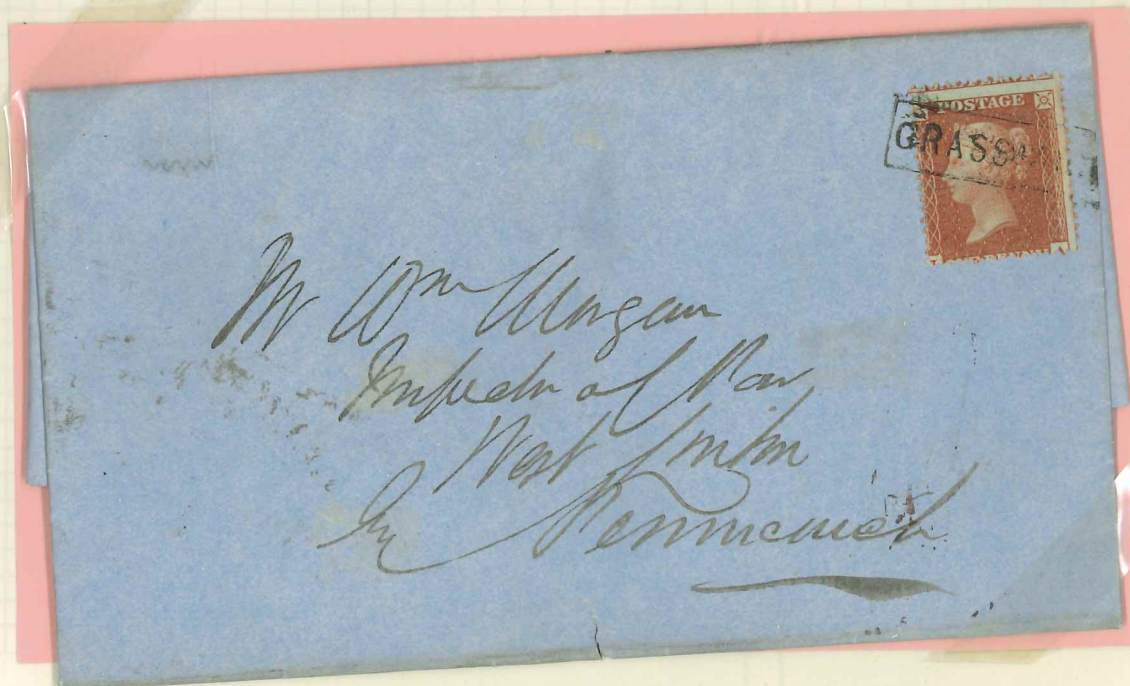 POSTAGE
GRASSM
Mr Wm Morgan
Inspector of Poor
West Linton
By Pennicuick